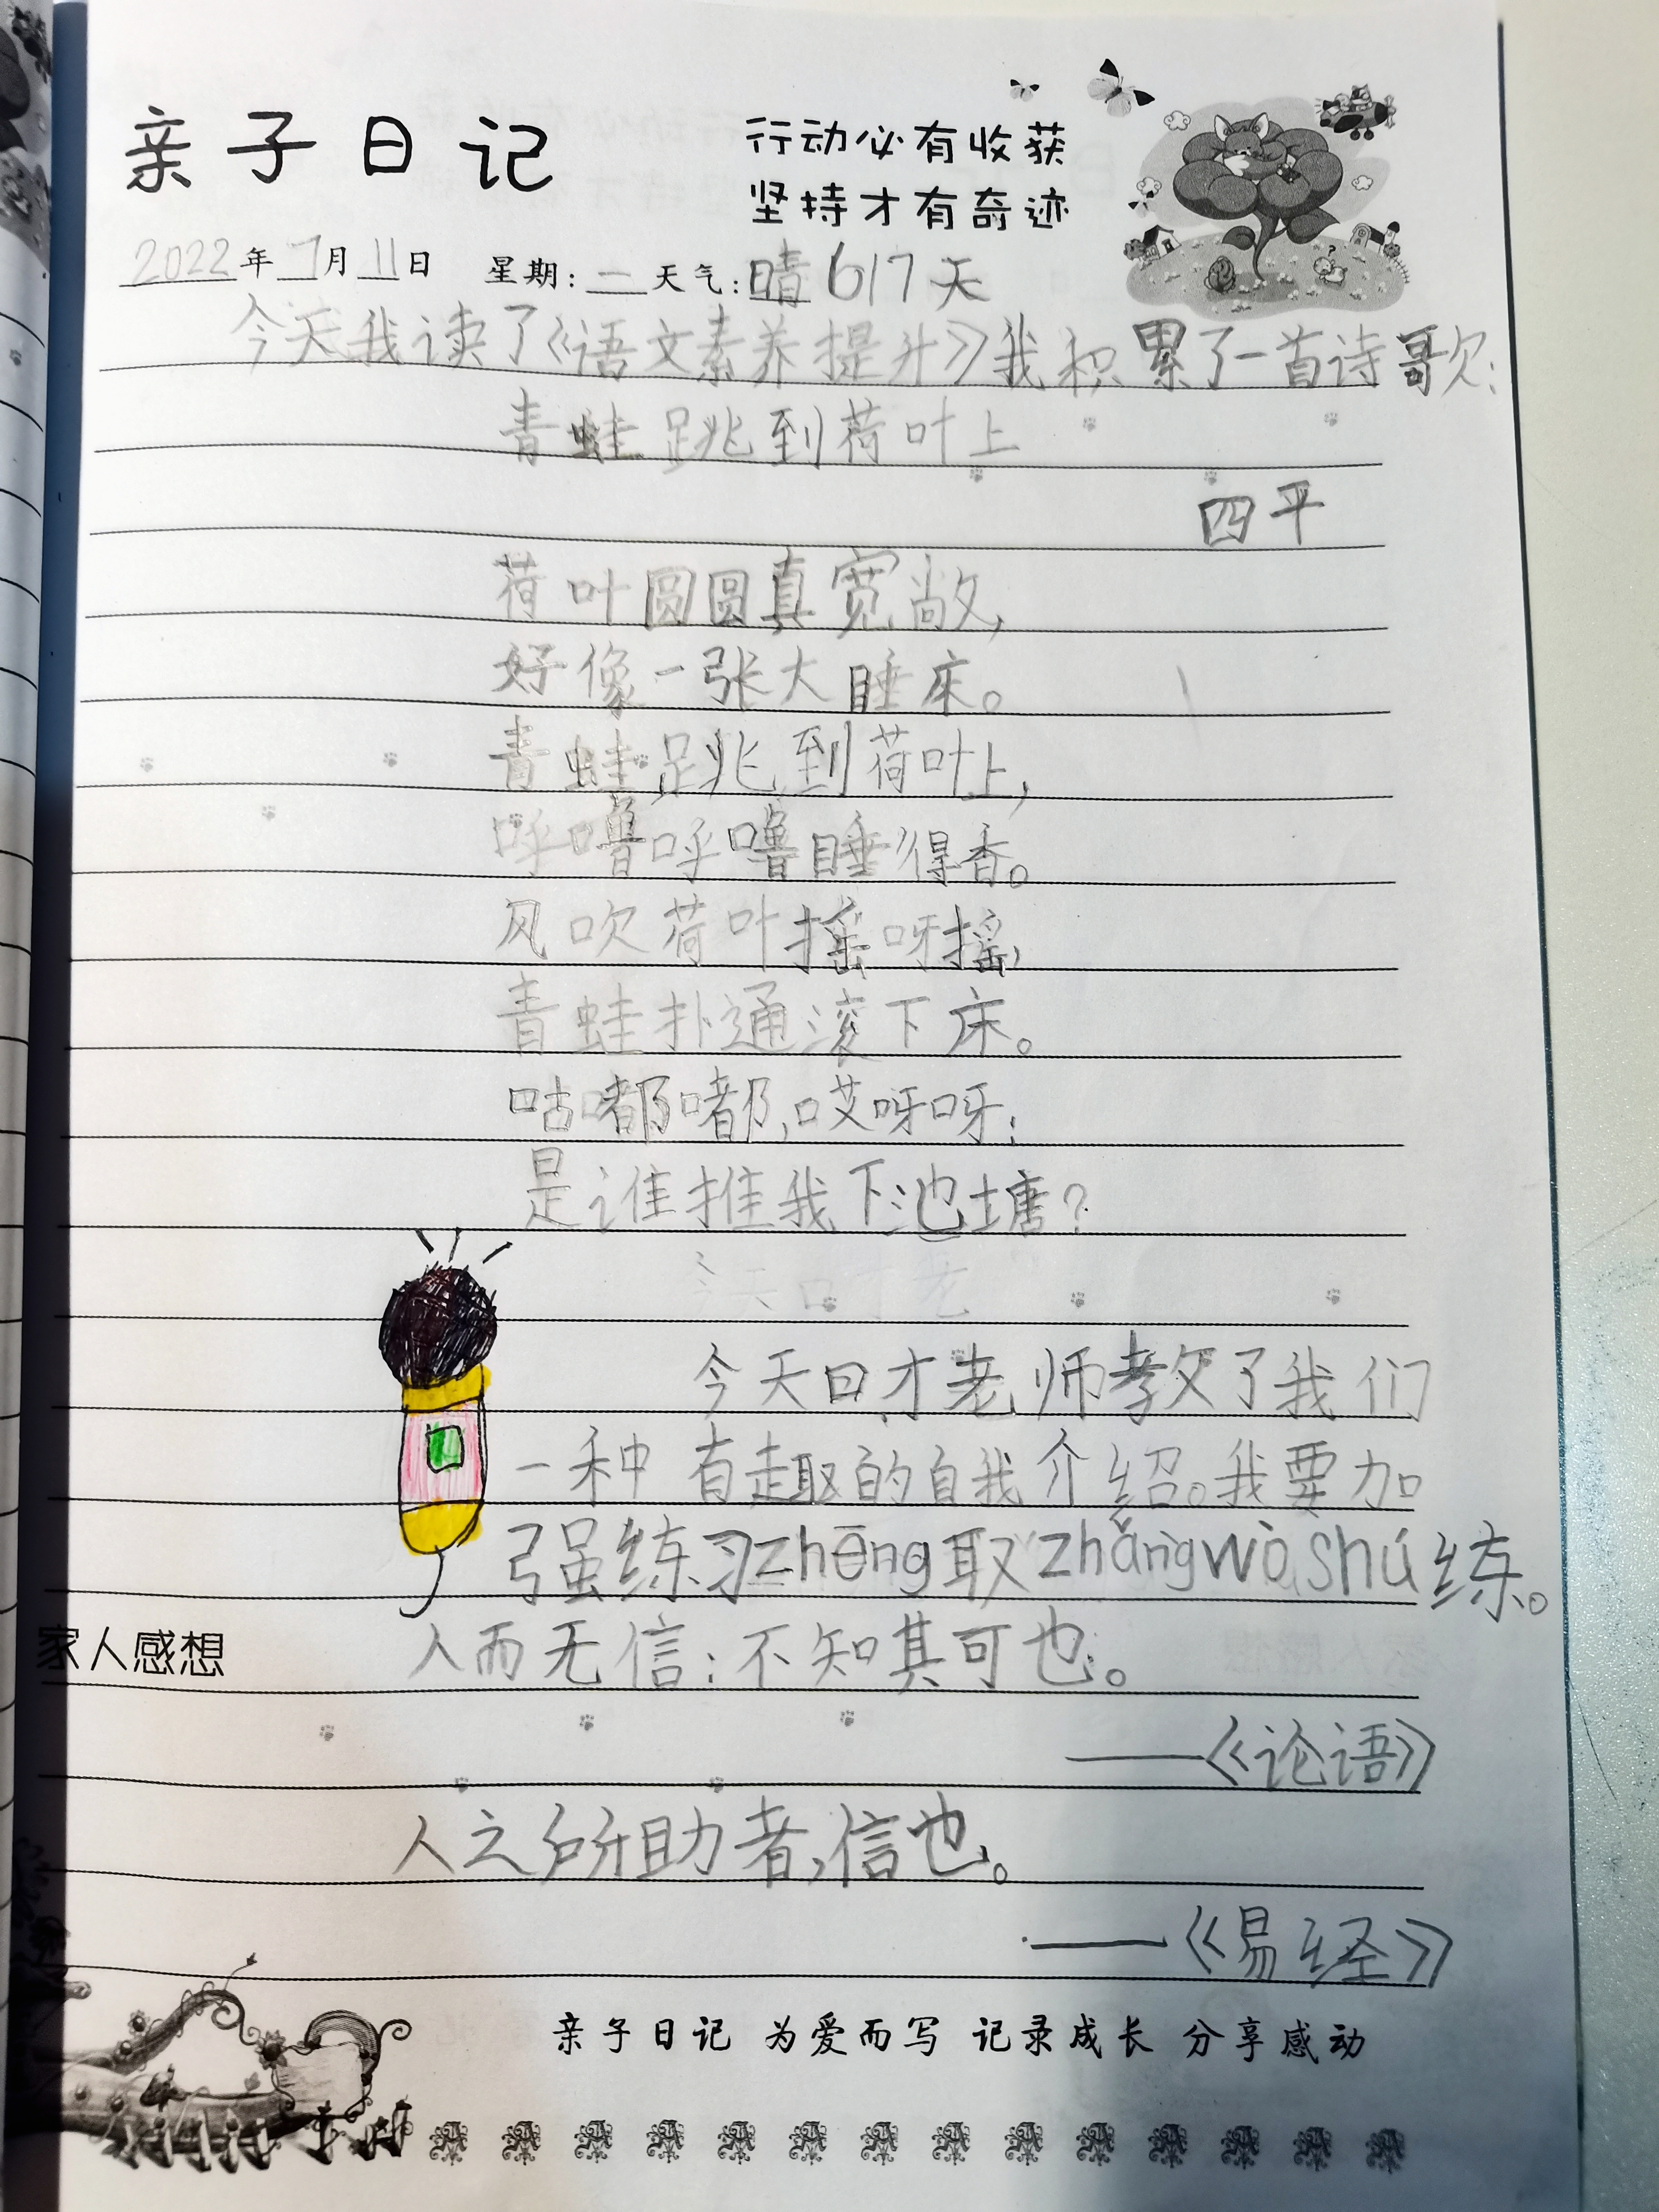 亲子日记
行动必有收获
坚持才有奇迹
2022年7月11日 星期:一天气:晴 617天
今天我读了《语文素养提升》我积累了一首诗歌:
青蛙跳到荷叶上
四平
荷叶圆圆真宽敞,
好像一张大睡床。
青蛙跳到荷叶上,
呼噜呼噜睡得香。
风吹荷叶摇呀摇,
青蛙扑通滚下床。
咕嘟嘟,哎呀呀:
是谁推我下池塘?
今天口才老师教了我们
一种有趣的自我介绍。我要加
强练习zhēng取zhǎngwòshú练。
家人感想 人而无信:不知其可也。
——《论语》
人之所助者,信也。
——《易经》
亲子日记 为爱而写 记录成长 分享感动